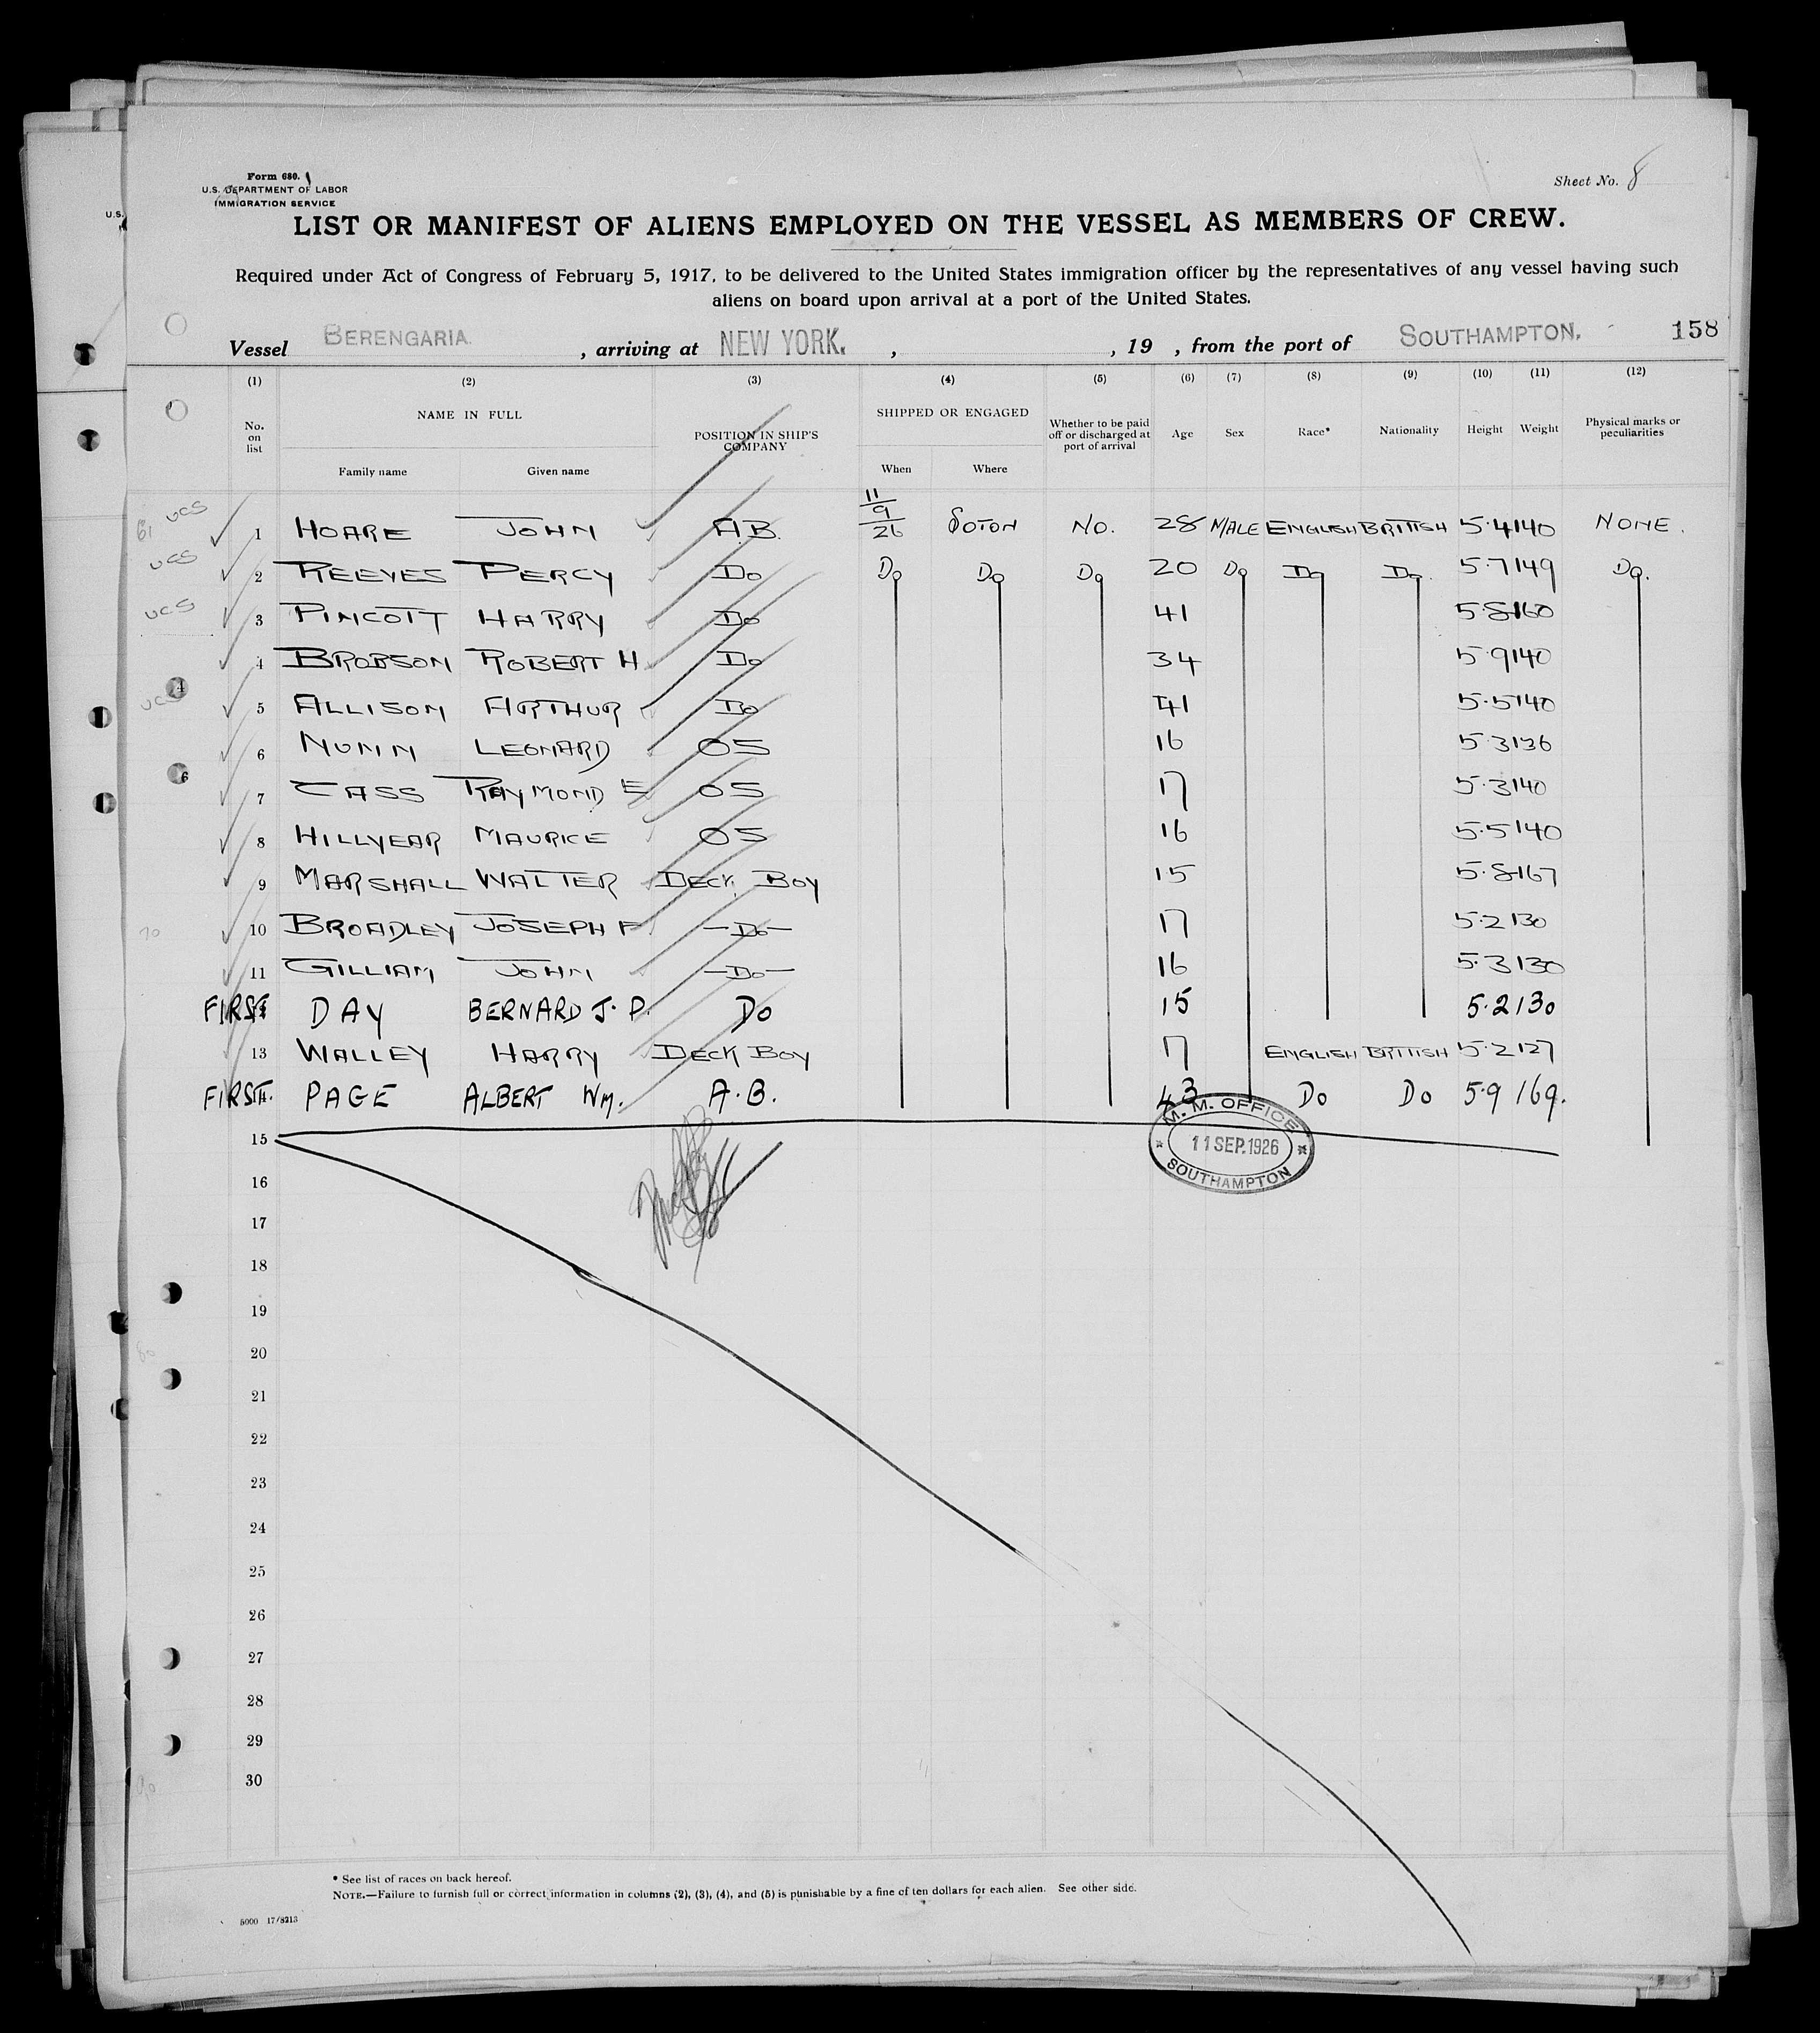 Form 680.
U.S. DEPARTMENT OF LABOR
IMMIGRATION SERVICE
Sheet No. 8
U.S.
LIST OR MANIFEST OF ALIENS EMPLOYED ON THE VESSEL AS MEMBERS OF CREW.
Required under Act of Congress of February 5, 1917, to be delivered to the United States immigration officer by the representatives of any vessel having such
aliens on board upon arrival at a port of the United States.
Vessel BERENGARIA , arriving at NEW YORK. , , 19 , from the port of SOUTHAMPTON. 158
(1) (2) (3) (4) (5) (6) (7) (8) (9) (10) (11) (12)
No. on list NAME IN FULL Family name Given name POSITION IN SHIP'S COMPANY SHIPPED OR ENGAGED When Where Whether to be paid off or discharged at port of arrival Age Sex Race* Nationality Height Weight Physical marks or peculiarities
UCS 1 HOARE JOHN A.B. 11/9/26 SOTON NO. 28 MALE ENGLISH BRITISH 5.4 140 NONE.
UCS 2 REEVES PERCY Do Do Do Do 20 Do Do Do. 5.7 149 Do.
UCS 3 PINCOTT HARRY Do 41 5.8 160
4 BROBSON ROBERT H. Do 34 5.9 140
UCS 5 ALLISON ARTHUR Do 41 5.5 140
6 NUNN LEONARD OS 16 5.3 136
7 CASS RAYMOND E OS 17 5.3 140
8 HILLYEAR MAURICE OS 16 5.5 140
9 MARSHALL WALTER DECK BOY 15 5.8 167
10 BROADLEY JOSEPH F. —Do— 17 5.2 130
11 GILLIAM JOHN —Do— 16 5.3 130
FIRST DAY BERNARD J. P. Do 15 5.2 130
13 WALLEY HARRY DECK BOY 17 ENGLISH BRITISH 5.2 127
FIRST. PAGE ALBERT WM. A.B. 43 Do Do 5.9 169.
M. M. OFFICE
11 SEP. 1926
SOUTHAMPTON
15
16
17
18
19
20
21
22
23
24
25
26
27
28
29
30
* See list of races on back hereof.
NOTE.—Failure to furnish full or correct information in columns (2), (3), (4), and (5) is punishable by a fine of ten dollars for each alien. See other side.
5000 17/8213